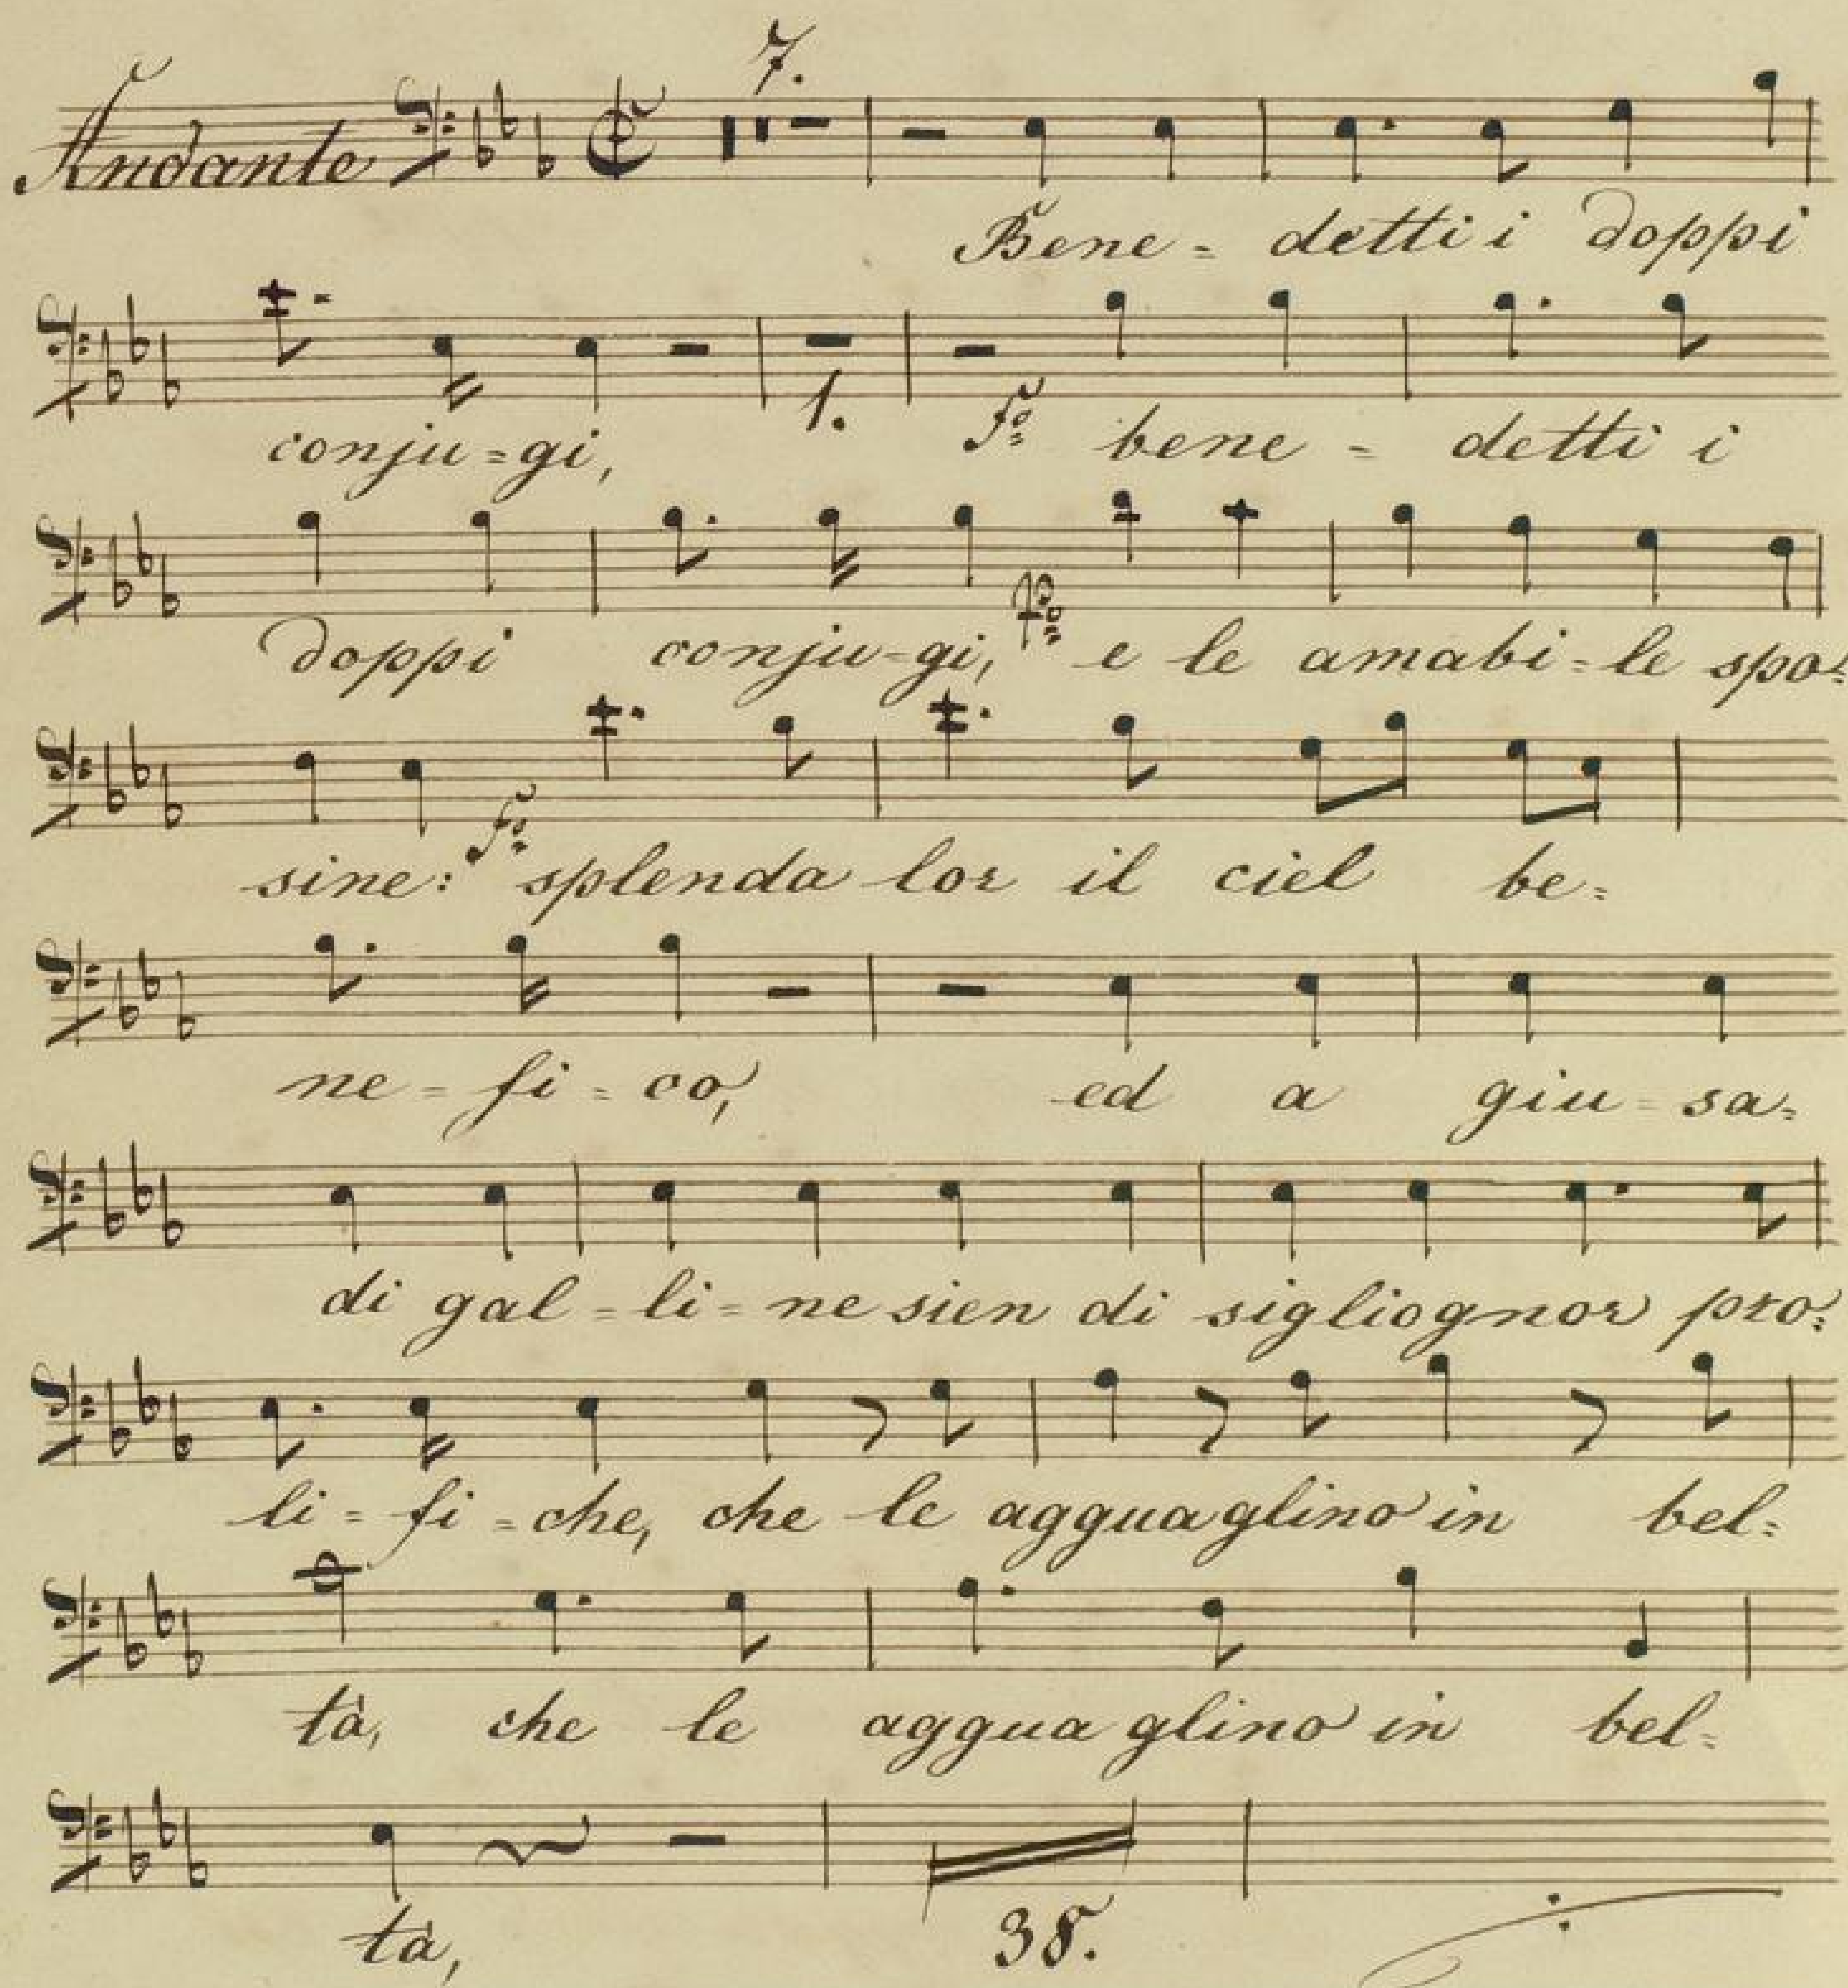 7.
Andante
Bene = detti i doppi
conju = gi, 1. fo bene = detti i
doppi conju = gi, po e le amabi = le spo =
sine: fo splenda lor il ciel be =
ne = fi = co, ed a giu = sa =
di gal = li = ne sien di sigliognor pro =
li = fi = che, che le agguaglino in bel =
tà, che le agguaglino in bel =
tà, 38.